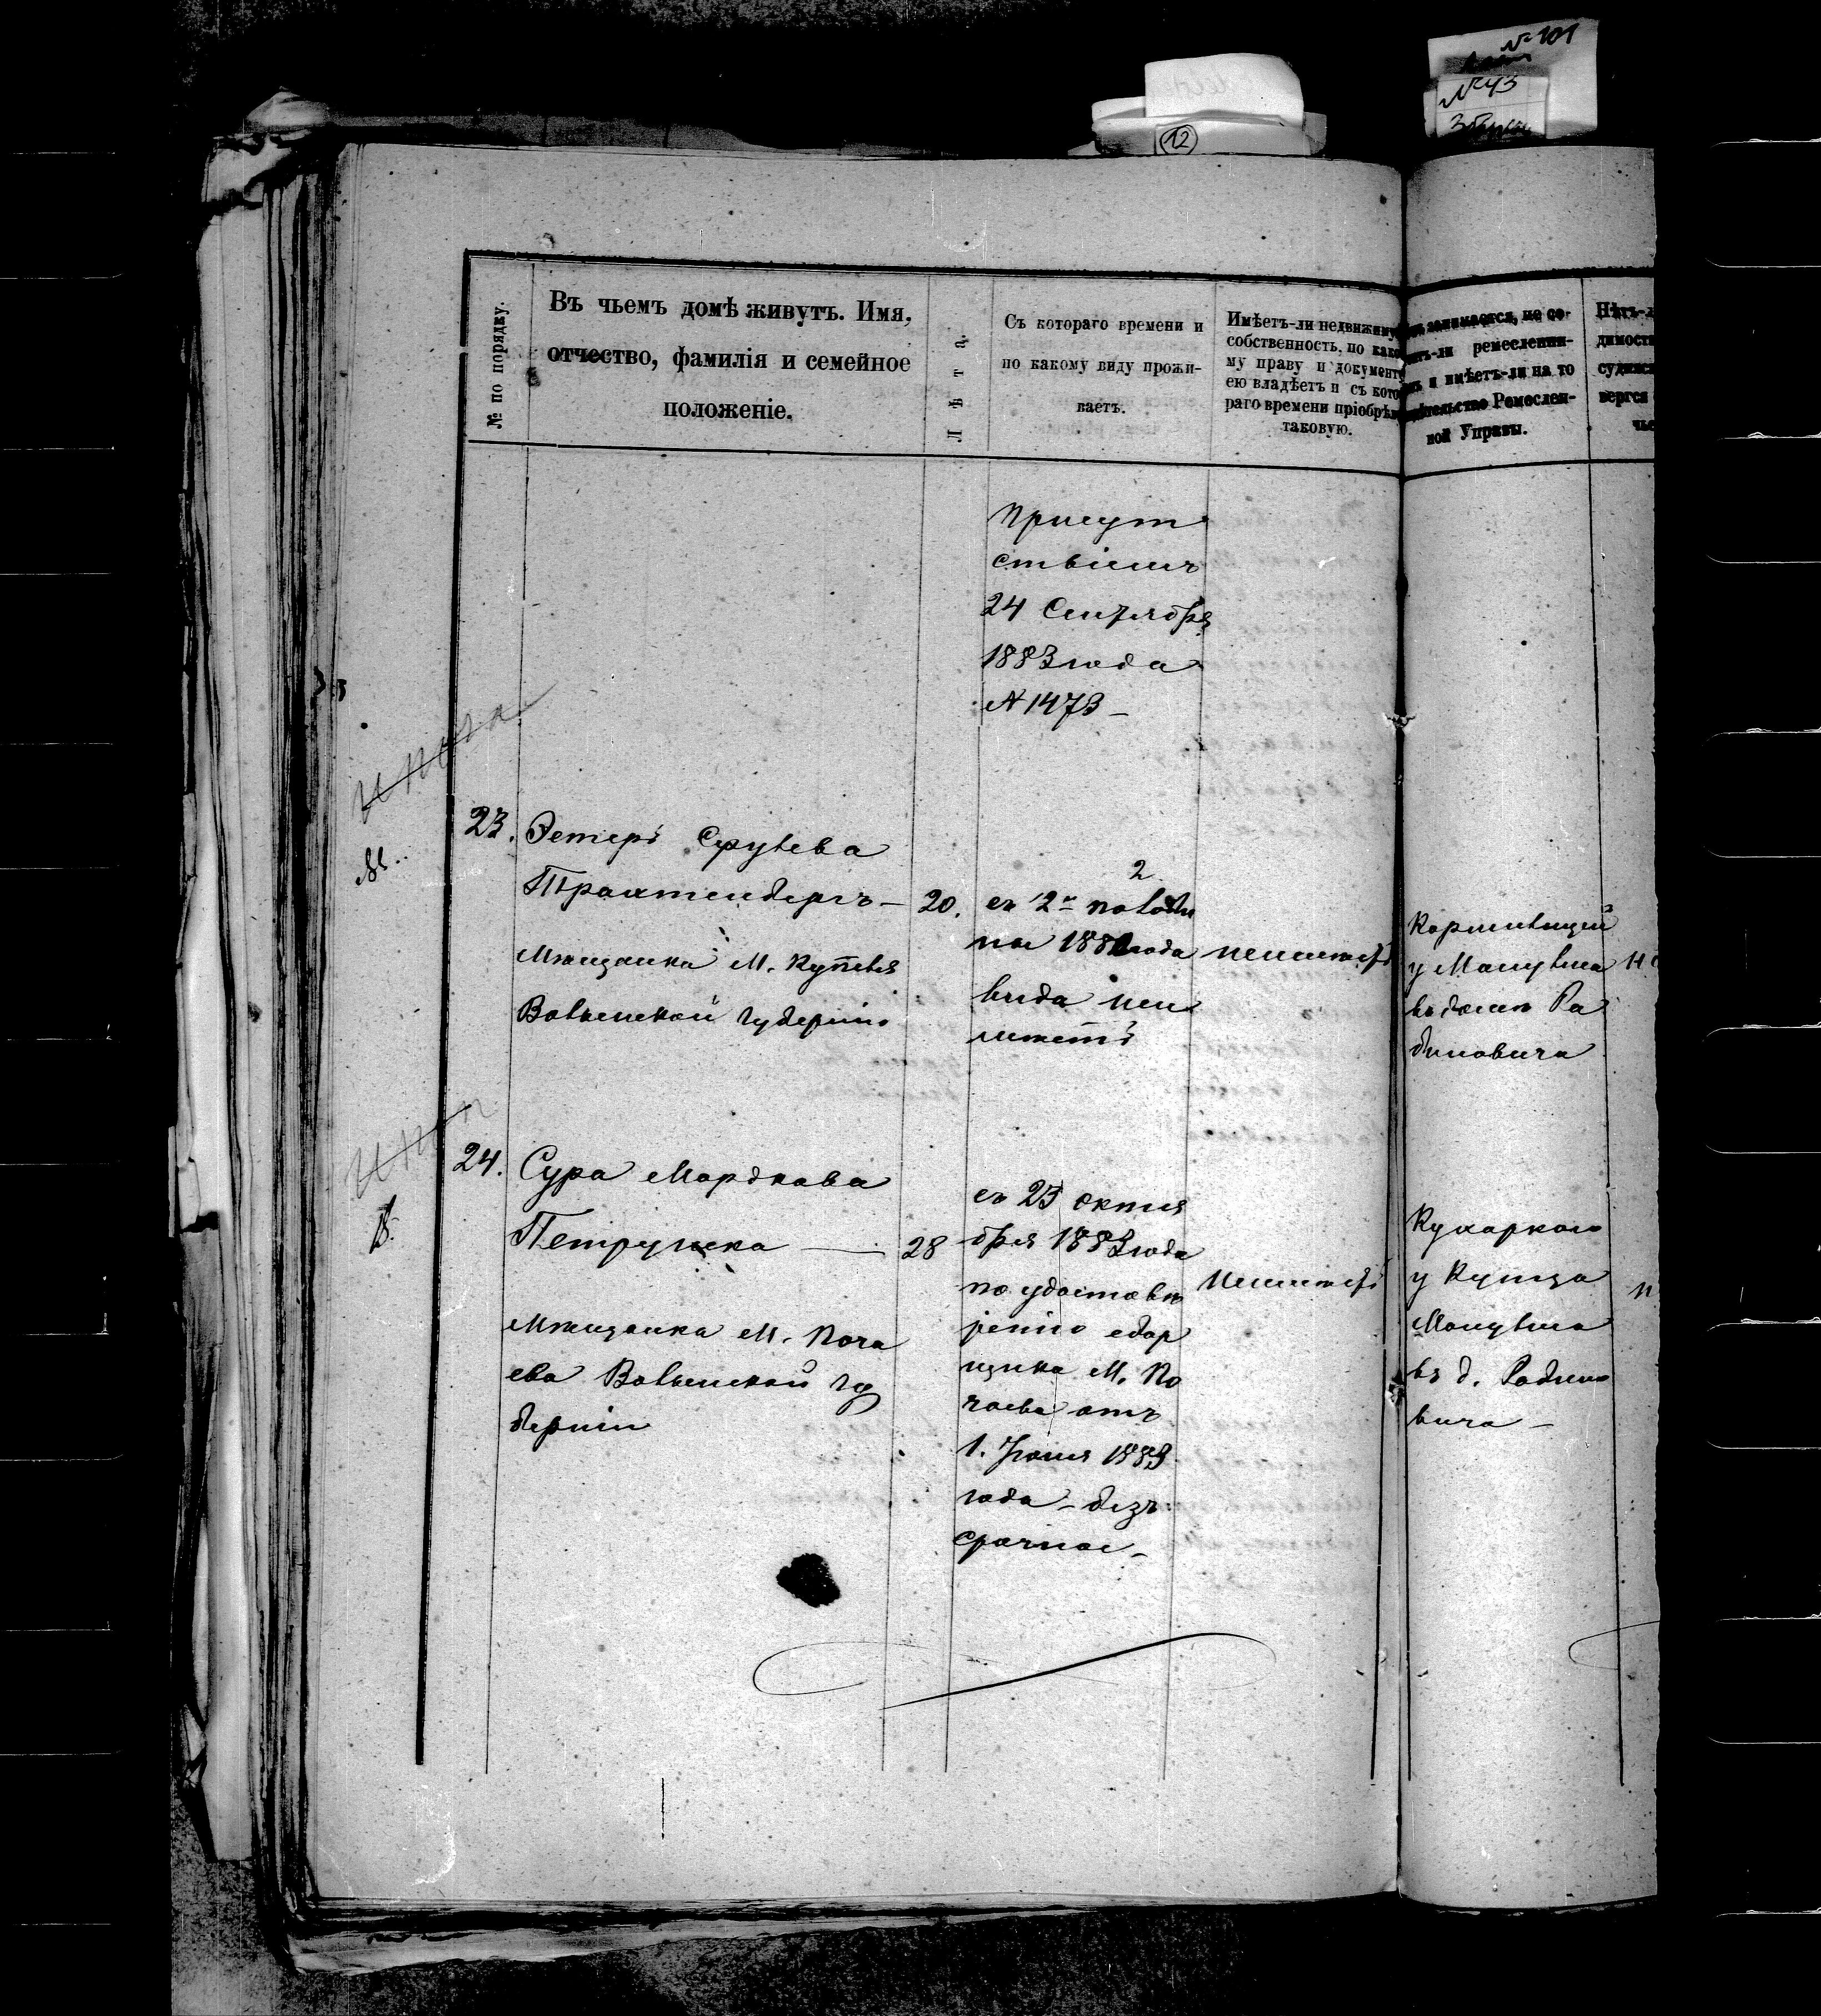 № 101
№ 43
12
№ по порядку.
Въ чьемъ домѣ живутъ. Имя,
отчество, фамилія и семейное
положеніе.
Лѣта.
Съ котораго времени и
по какому виду прожи-
ваетъ.
Имѣетъ-ли недвижиму
собственность, по како
му праву и документу
ею владѣетъ и съ кото
раго времени пріобрѣлъ
таковую.
занимается, не со-
ремесленни-
и имѣетъ-ли на то
Ремеслен-
ной Управы.
Нѣтъ-л
димости
судимс
вергся
чье
Присут
ствіемъ
24 Сентября
1883 года
№ 1473 —
23.
Эстеръ
Трахтенбергъ —
Мѣщанка М. Купеля
Волынской губерніи
20.
2
съ 2го
ное 188 года
вида не и
мѣетъ
неимѣетъ
Кормилицей
у Манувича
въ домѣ Ра
биновича
24.
Сура Мордкова
Петрушка —
Мѣщанка М. Поча
ева Волынской гу
берніи
28
съ 23 октя
бря 1883 года
по удостовѣ
ренію сбор
щика М. По
чаева отъ
1. Іюня 1883
года — безъ
срочное —
Неимѣетъ
Кухаркою
у Купца
Манувича
въ д. Рабино
вича —